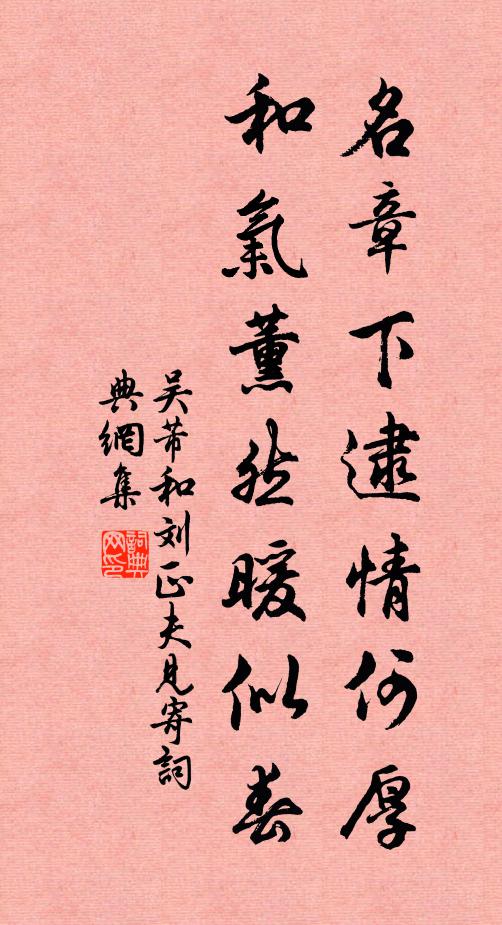 名章下逮情何厚
和氣薰然暖似春
吴芾和刘正夫見寄詞
典網集
詞典
网印